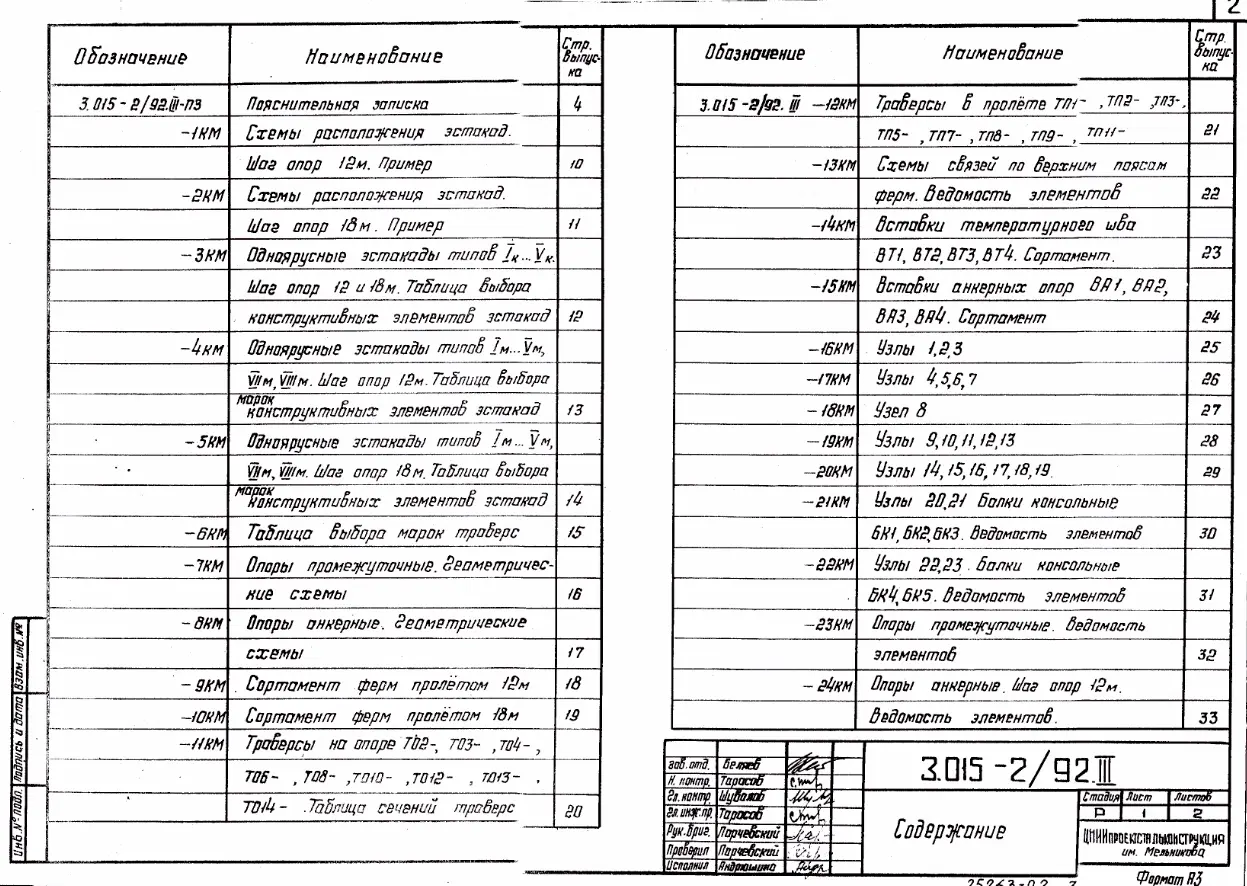 2
Обозначение Наименование Стр. выпус-ка
3.015-2/92.III-ПЗ Пояснительная записка 4
-1КМ Схемы расположения эстакад.
Шаг опор 12м. Пример 10
-2КМ Схемы расположения эстакад.
Шаг опор 18м. Пример 11
-3КМ Одноярусные эстакады типов Iк...Vк.
Шаг опор 12 и 18м. Таблица выбора
конструктивных элементов эстакад 12
-4КМ Одноярусные эстакады типов Iм...Vм,
VIIм, VIIIм. Шаг опор 12м. Таблица выбора
марок
конструктивных элементов эстакад 13
-5КМ Одноярусные эстакады типов Iм...Vм,
VIIм, VIIIм. Шаг опор 18м. Таблица выбора
марок
конструктивных элементов эстакад 14
-6КМ Таблица выбора марок траверс 15
-7КМ Опоры промежуточные. Геометричес-
кие схемы 16
-8КМ Опоры анкерные. Геометрические
схемы 17
-9КМ Сортамент ферм пролётом 12м 18
-10КМ Сортамент ферм пролётом 18м 19
-11КМ Траверсы на опоре ТО2-, ТО3- , ТО4- ,
ТО6- , ТО8- , ТО10- , ТО12- , ТО13- ,
ТО14- . Таблица сечений траверс 20
Обозначение Наименование Стр. выпус-ка
3.015-2/92.III -12КМ Траверсы в пролёте ТП1- , ТП2- , ТП3- ,
ТП5- , ТП7- , ТП8- , ТП9- , ТП11- 21
-13КМ Схемы связей по верхним поясам
ферм. Ведомость элементов 22
-14КМ Вставки температурного шва
ВТ1, ВТ2, ВТ3, ВТ4. Сортамент. 23
-15КМ Вставки анкерных опор ВА1, ВА2,
ВА3, ВА4. Сортамент 24
-16КМ Узлы 1,2,3 25
-17КМ Узлы 4,5,6,7 26
-18КМ Узел 8 27
-19КМ Узлы 9,10,11,12,13 28
-20КМ Узлы 14,15,16,17,18,19. 29
-21КМ Узлы 20,21 Балки консольные
БК1, БК2, БК3. Ведомость элементов 30
-22КМ Узлы 22,23. Балки консольные
БК4, БК5. Ведомость элементов 31
-23КМ Опоры промежуточные. Ведомость
элементов 32
-24КМ Опоры анкерные. Шаг опор 12м.
Ведомость элементов. 33
Зав. отд. Беляев
Н. контр. Тарасов
Гл. констр. Шувалов
Гл. инж. пр. Тарасов
Рук. бриг. Парчевский
Проверил Парчевский
Исполнил Андрюшина
3.015-2/92.III
Содержание
Стадия Лист Листов
Р 1 2
ЦНИИПРОЕКТСТАЛЬКОНСТРУКЦИЯ
им. Мельникова
Формат А3
Инв.№ подл. Подпись и дата Взам.инв.№